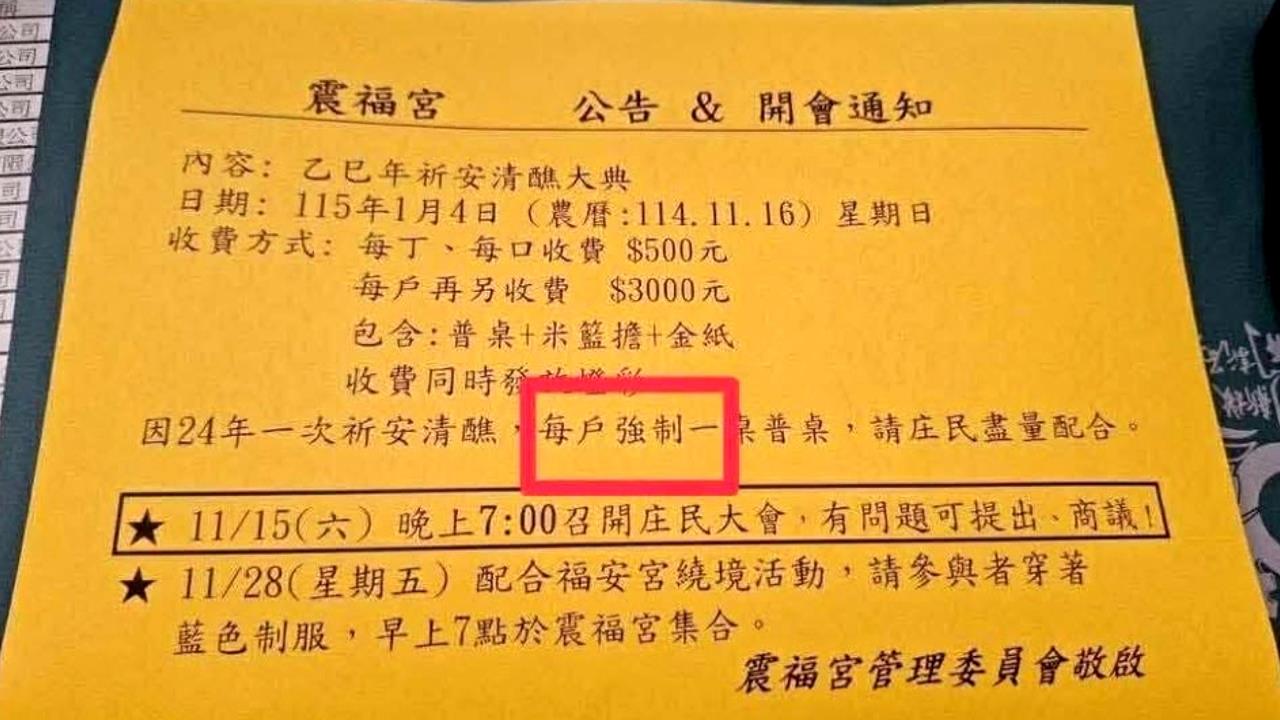 震福宮 公告 & 開會通知
內容: 乙巳年祈安清醮大典
日期: 115年1月4日 (農曆:114.11.16) 星期日
收費方式: 每丁、每口收費 $500元
每戶再另收費 $3000元
包含:普桌+米籃擔+金紙
收費同時發放燈彩
因24年一次祈安清醮,每戶強制一桌普桌,請庄民盡量配合。
★ 11/15(六) 晚上7:00召開庄民大會,有問題可提出、商議!
★ 11/28(星期五) 配合福安宮繞境活動,請參與者穿著
藍色制服,早上7點於震福宮集合。
震福宮管理委員會敬啟
公司
公司
公司
公司
司
司
公司
司
司